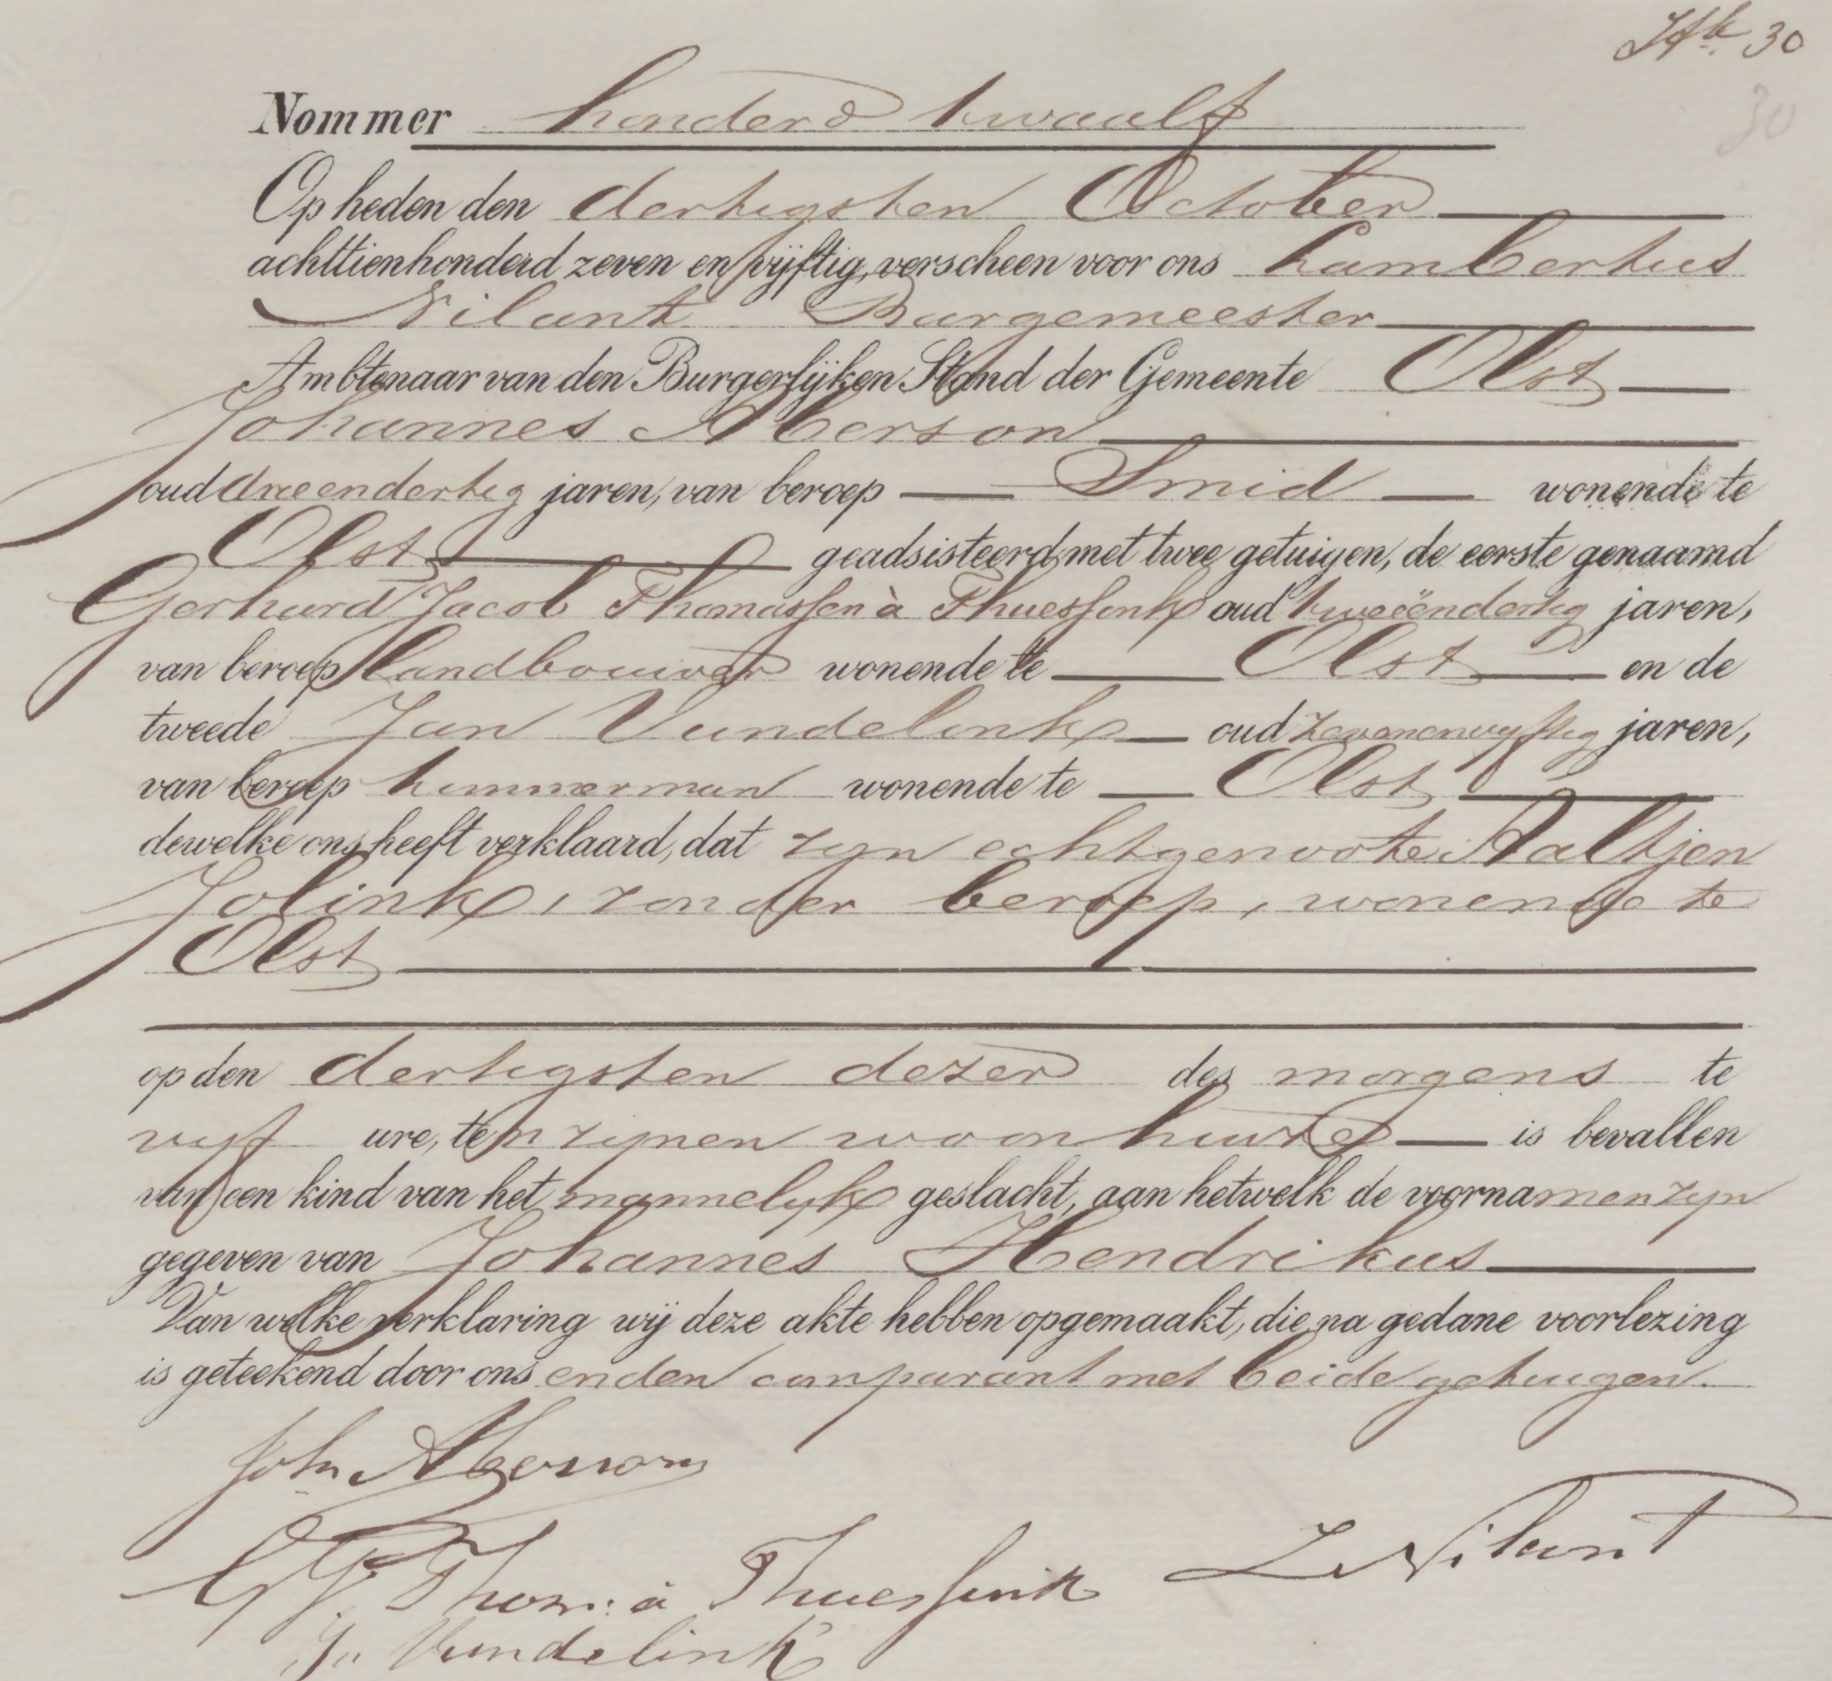 30
30
Nommer honderd twaalf
Op heden den dertigsten October
achttienhonderd zeven en vijftig, verscheen voor ons Lambertus
Nilant Burgemeester
Ambtenaar van den Burgerlijken Stand der Gemeente Olst
Johannes Aberson
oud drieendertig jaren, van beroep Smid wonende te
Olst geadsisteerd met twee getuigen, de eerste genaamd
Gerhard Jacob Thomassen à Thuessink oud tweeëndertig jaren,
van beroep landbouwer wonende te Olst en de
tweede Jan Vundelink oud zevenenvyftig jaren,
van beroep timmerman wonende te Olst
dewelke ons heeft verklaard, dat zyn echtgenoote Aaltjen
Jolink, zonder beroep, wonende te
Olst
op den dertigsten dezer des morgens te
vyf ure, ten zynen woonhuize is bevallen
van een kind van het mannelyk geslacht, aan hetwelk de voornamen zyn
gegeven van Johannes Hendrikus
Van welke verklaring wij deze akte hebben opgemaakt, die na gedane voorlezing
is geteekend door ons en den comparant met beide getuigen.
Joh Aberson
GJ. Thom: à Thuessink L Nilant
Jn Vundelink